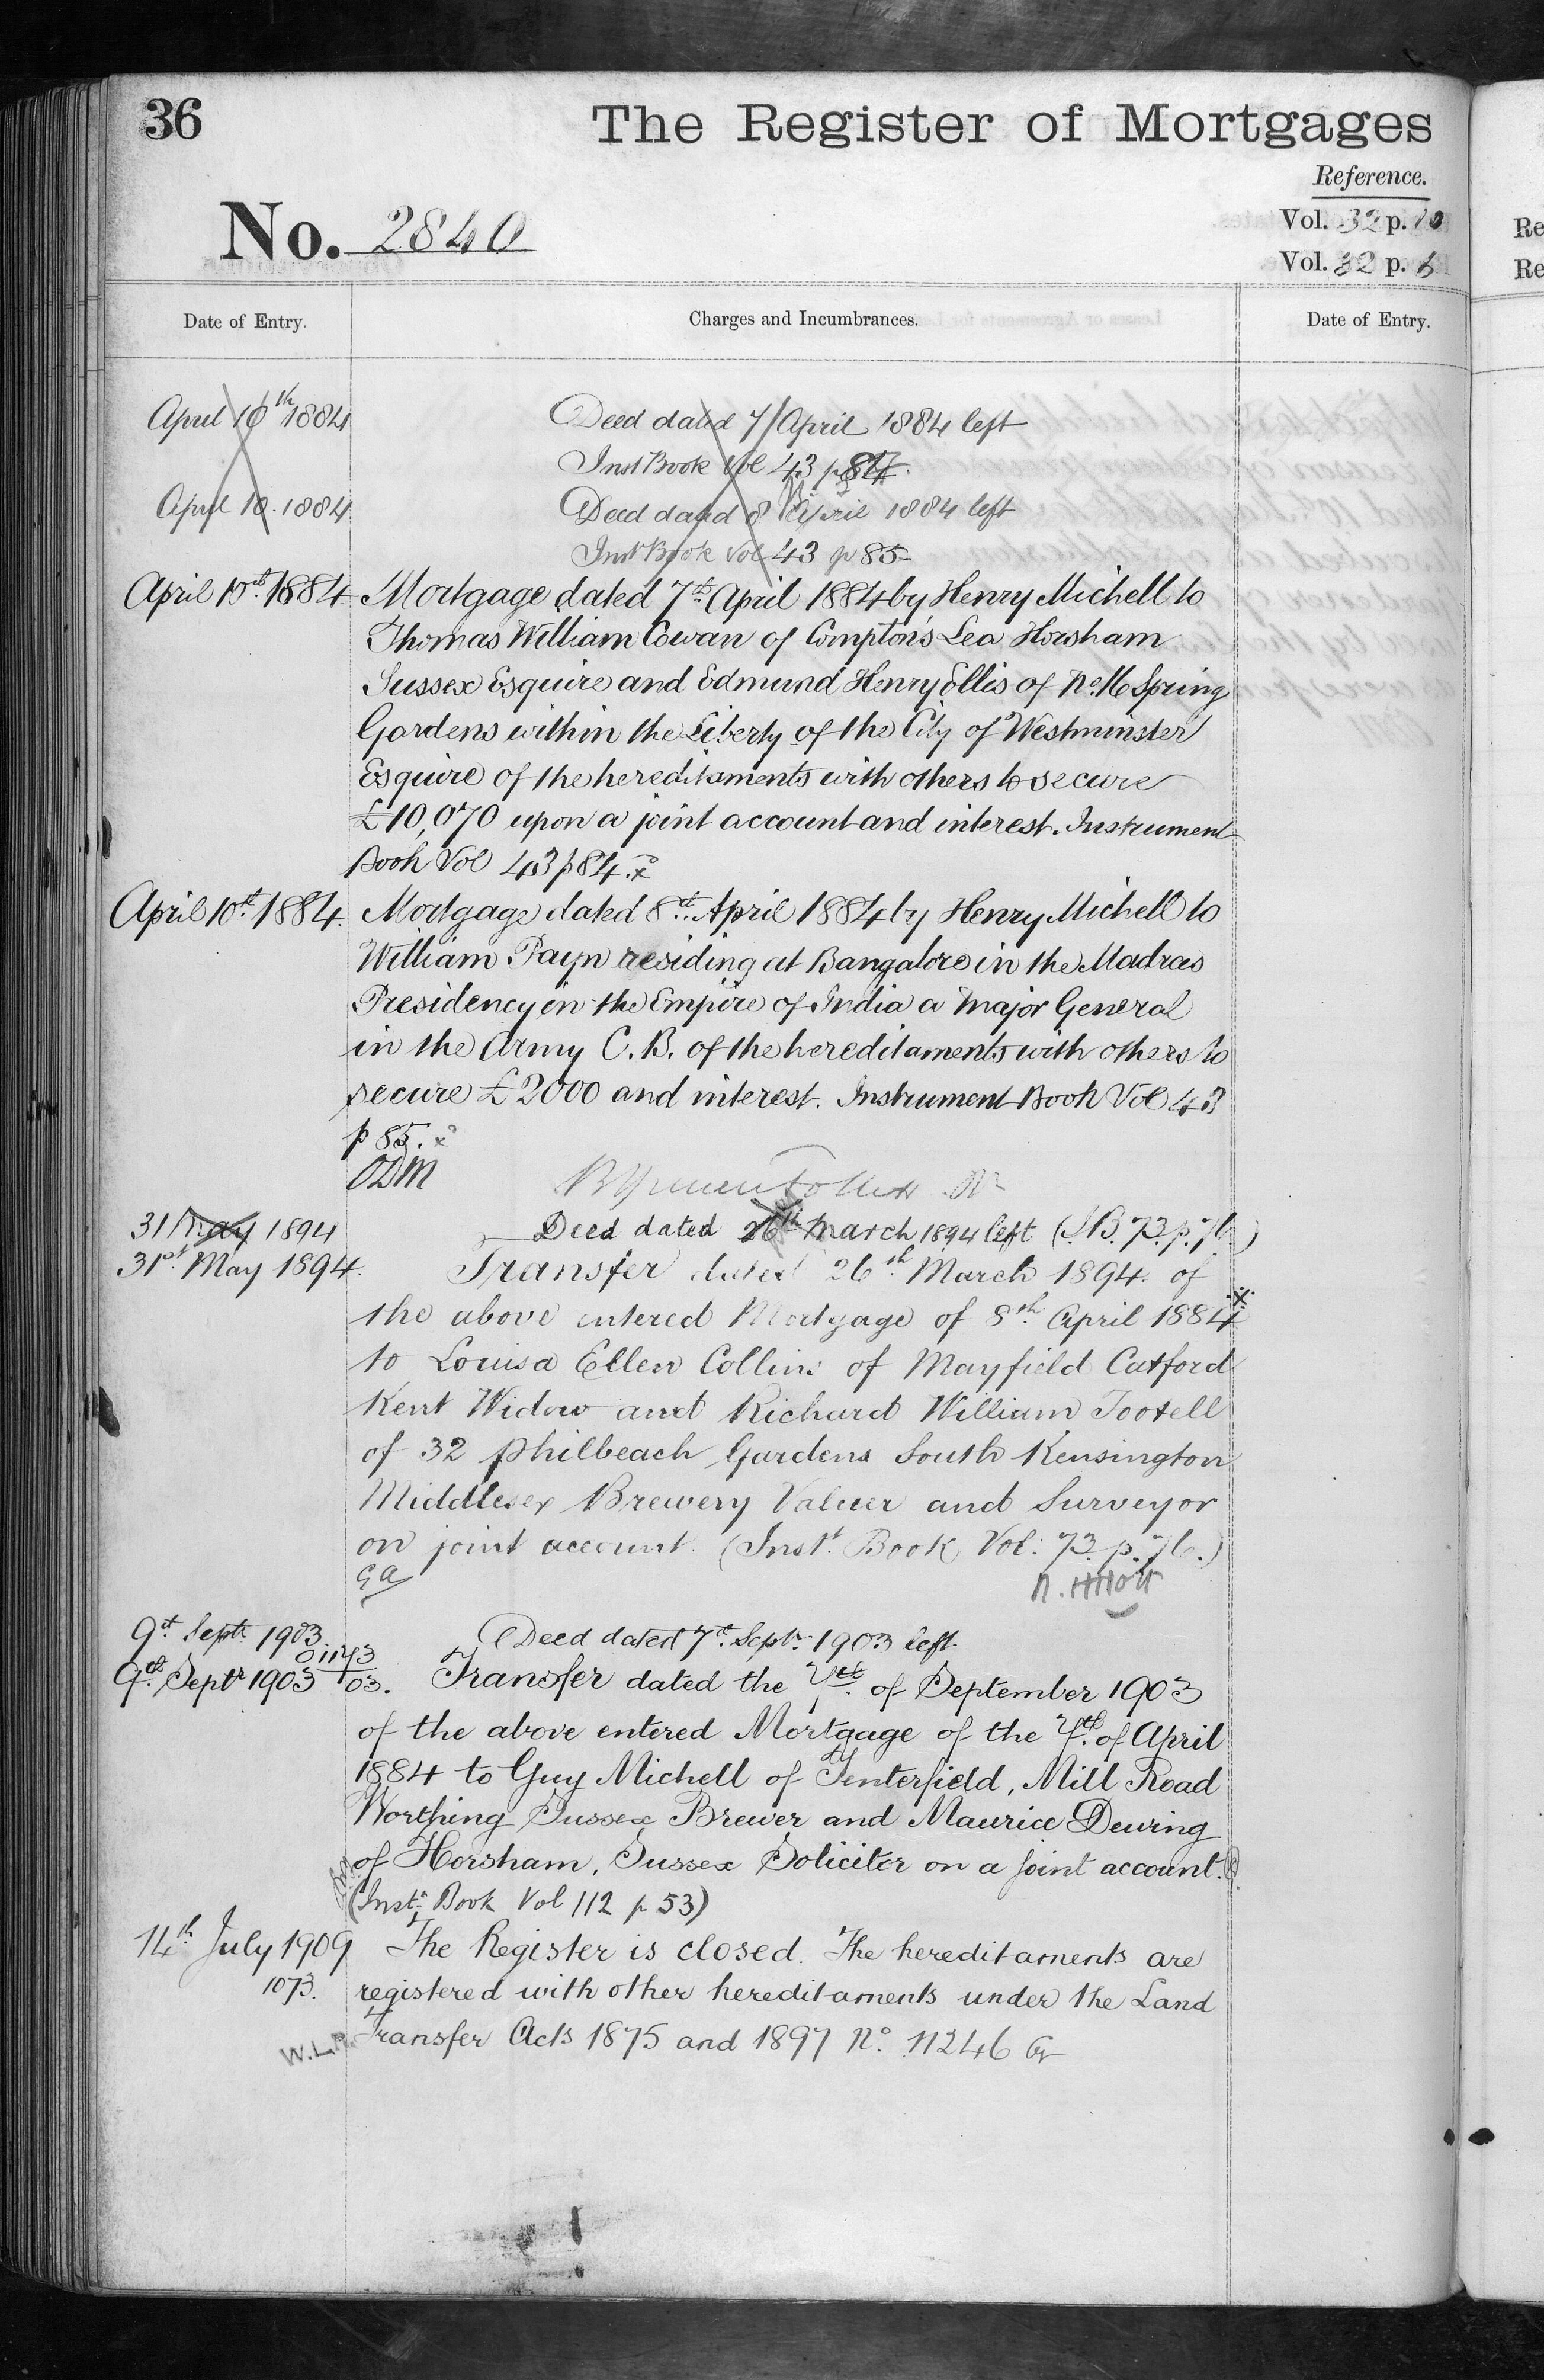 36
The Register of Mortgages
Reference.
No. 2840
Vol. 32 p. 10
Vol. 32 p.
Date of Entry.
Charges and Incumbrances.
Date of Entry.
April 10th 1884
Deed dated 7 April 1884 left
Inst Book Vol 43 p 84
April 10. 1884
Deed dated 8 April 1884 left
Inst Book Vol 43 p 85
April 10th. 1884
Mortgage dated 7th April 1884 by Henry Michell to
Thomas William Cowan of Compton's Lea Horsham
Sussex Esquire and Edmund Henry Ellis of No. 16 Spring
Gardens within the Liberty of the City of Westminster
Esquire of the hereditaments with others to secure
£10,070 upon a joint account and interest. Instrument
Book Vol 43 p 84.
April 10th. 1884.
Mortgage dated 8th. April 1884 by Henry Michell to
William Payn residing at Bangalore in the Madras
Presidency in the Empire of India a Major General
in the Army C. B. of the hereditaments with others to
secure £2000 and interest. Instrument Book Vol 43
p 85.
ODM
31 May 1894
Deed dated 26th March 1894 left (I.B. 73. p. 76)
31st. May 1894.
Transfer dated 26th. March 1894. of
the above entered Mortgage of 8th. April 1884
to Louisa Ellen Collins of Mayfield Catford
Kent Widow and Richard William Tootell
of 32 Philbeach Gardens South Kensington
Middlesex Brewery Valuer and Surveyor
on joint account. (Inst. Book Vol: 73. p. 76.)
9th Septr. 1903
Deed dated 7th. Septr. 1903 left.
01143
03.
9th. Septr 1903
Transfer dated the 7th. of September 1903
of the above entered Mortgage of the 7th. of April
1884 to Guy Michell of Tenterfield, Mill Road
Worthing Sussex Brewer and Maurice Dewing
of Horsham, Sussex Solicitor on a joint account.
(Inst. Book Vol 112 p 53)
14th July 1909
The Register is closed. The hereditaments are
1073.
registered with other hereditaments under the Land
W.L.R.
Transfer Acts 1875 and 1897 No. 11246